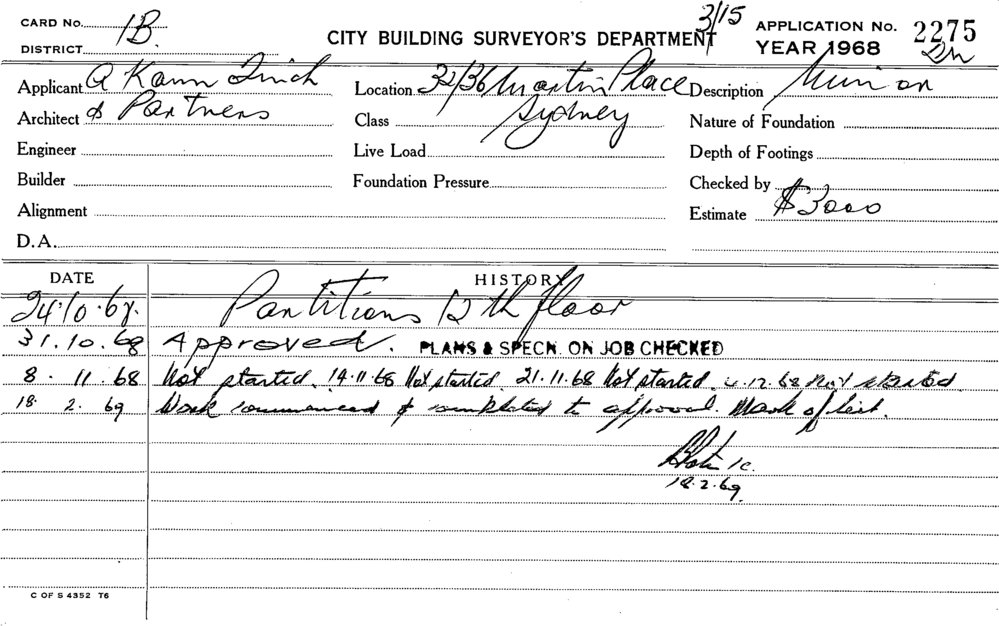 CARD No. 1B. CITY BUILDING SURVEYOR'S DEPARTMENT 3/15 APPLICATION No. 2275
DISTRICT YEAR 1968
Applicant A Kann Finch Location 32/36 Martin Place Description
Architect & Partners Class Sydney Nature of Foundation
Engineer Live Load Depth of Footings
Builder Foundation Pressure Checked by
Alignment Estimate $3000
D.A.
DATE HISTORY
24.10.68. Partitions 12th floor
31.10.68 Approved. PLANS & SPECN. ON JOB CHECKED
8. 11. 68 Not started. 14.11.68 Not started. 21.11.68 Not started. 4.12.68 Not started.
18. 2. 69 Work commenced & completed to approval. Mark off list.
18.2.69.
C OF S 4352 T6